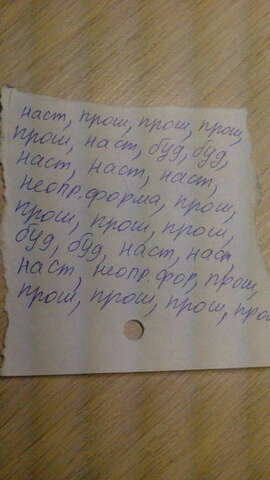 наст, прош, прош, прош,
прош, наст, буд, буд,
наст, наст, наст,
неопр. форма, прош,
прош, прош, прош,
буд, буд, наст, наст,
наст, неопр. фор, прош,
прош, прош, прош, прош